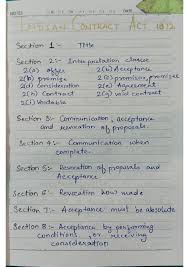 Indian Contract Act, 1872
Section 1:- Title
Section 2:- Interpretation clause
2(a) offer 2(b) Acceptance
2(b) promise 2(c) promisor, promisee
2(d) Consideration 2(e) Agreement
2(h) Contract 2(g) void contract
2(i) Voidable
Section 3:- Communication, acceptance
and revocation of proposals.
Section 4:- Communication when
complete.
Section 5:- Revocation of proposals and
Acceptance.
Section 6:- Revocation how made
Section 7:- Acceptance must be absolute
Section 8:- Acceptance by performing
conditions, or receiving
consideration